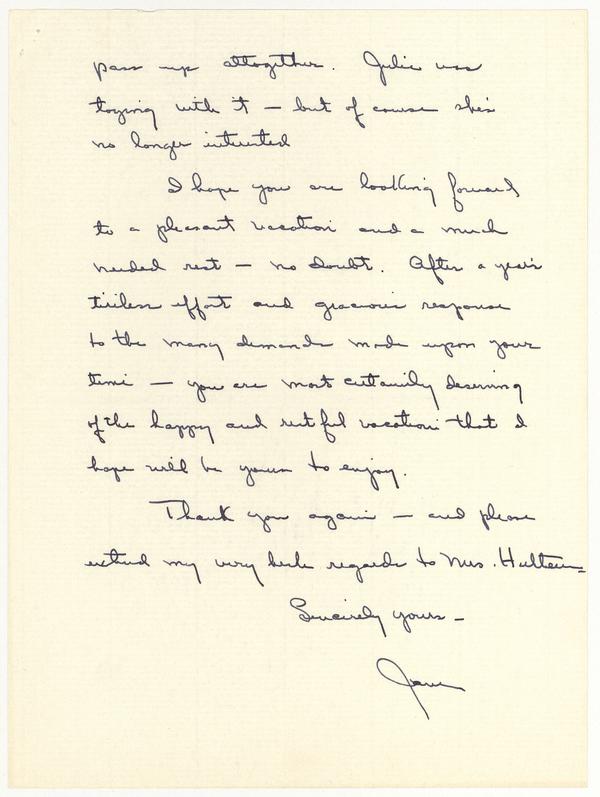 pass up altogether. Julie was
toying with it — but of course she's
no longer interested
I hope you are looking forward
to a pleasant vacation and a much
needed rest — no doubt. After a year's
tireless effort and gracious response
to the many demands made upon your
time — you are most certainly deserving
of the happy and restful vacation that I
hope will be yours to enjoy.
Thank you again — and please
extend my very best regards to Mrs. Hulteen
Sincerely yours —
Jane